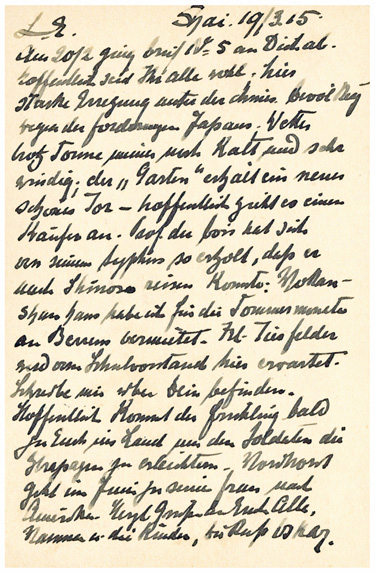 L. E. Shai. 19/3.15.
Am 20/2 ging brief No 5 an Dich ab.
Hoffentlich seid Ihr alle wohl. hier
starke Erregung unter der chines. Bevölkerg
wegen der forderungen Japans. Wetter
trotz Sonne immer noch kalt und sehr
windig; der „Garten" erhält ein neues
schönes Tor – hoffentlich zieht es einen
Käufer an. Prof. du bois hat sich
von seinem typhus so erholt, daß er
nach reisen konnte; Mokan-
shan haus habe ich für die Sommermonate
an vermietet. Frl. Tiesfelder
wird vom Schulvorstand hier erwartet.
Schreibe mir über Dein befinden.
Hoffentlich kommt der frühling bald
zu Euch ins Land um den Soldaten die
Strapazen zu erleichtern.
geht im Juni zu seiner frau nach
Amerika. Herzl Grüße an Euch Alle,
Mamma u. die Kinder,